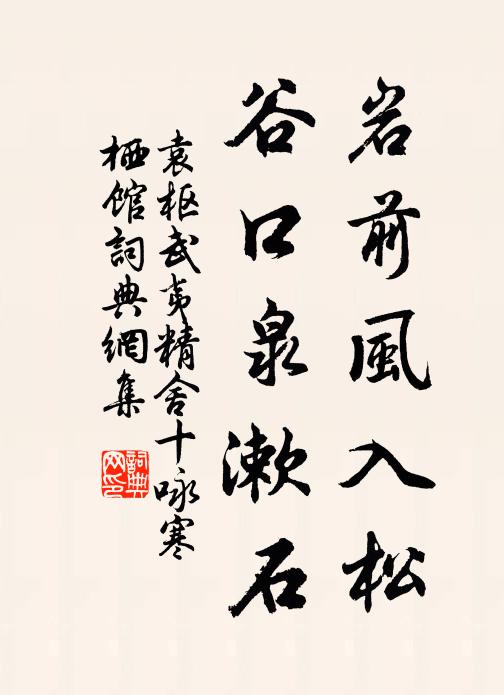 岩前風入松
谷口泉漱石
袁枢武夷精舍十咏寒
栖館詞典網集
詞典網印